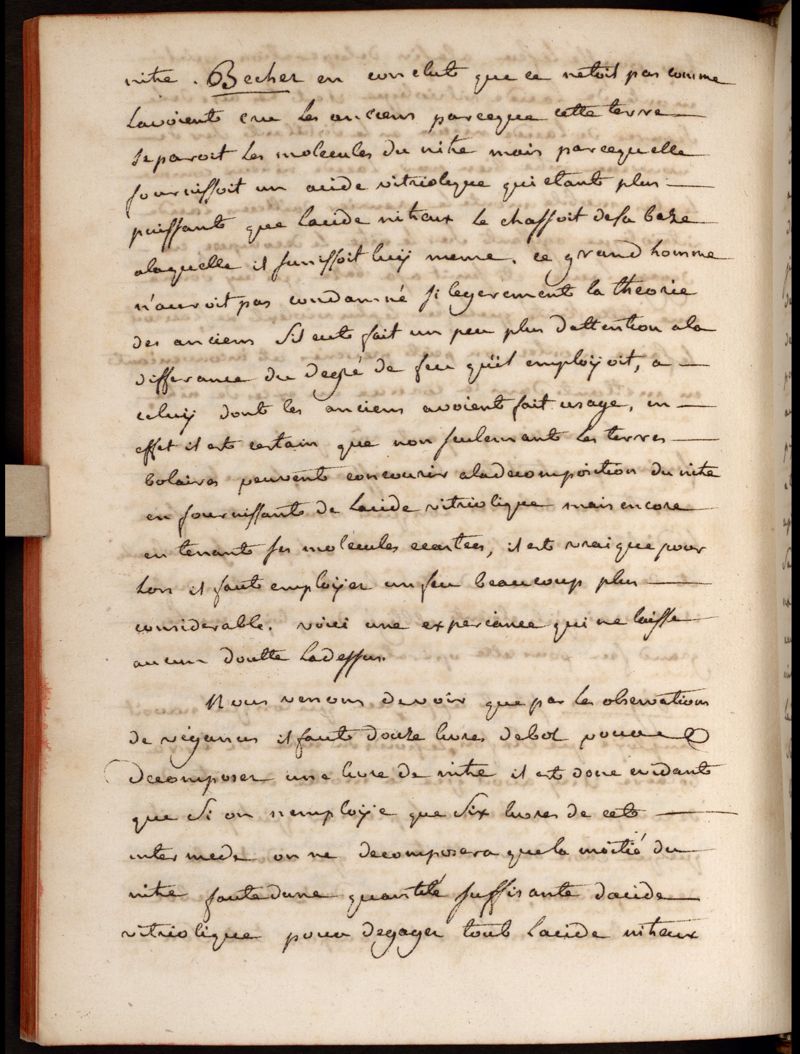 nitre. Becher en conclut que ce netoit pas comme
Lavoient cru les anciens parceque cette terre
separoit les molecules du nitre mais parcequelle
fournissoit un acide vitriolique qui etant plus
puissant que lacide nitreux le chassoit desa baze
alaquelle il sunissoit luy meme. ce grand homme
n'auroit pas condamné si legerement la theorie
des anciens sil eut fait un peu plus dattention ala
differance du degré de feu quïl employoit, a
celuy dont les anciens avoient fait usage, en
effet il est certain que non seulement les terres
bolaires peuvent concourir aladecomposition du nitre
en fournissant de lacide vitriolique mais encore
en tenant ses molécules ecartees, il est vrai que pour
lors il faut employer un feu beaucoup plus
considerable. voici une experiance qui ne laisse
aucun doutte ladessus.
Nous venons devoir que par les observations
de viganus il faut douze livres debol pour
decomposer une livre de nitre il est donc evidant
que si on nemploye que six livres de cet
intermede on ne decomposera que la moitié du
nitre faute dune quantité suffisante dacide
vitriolique pour degager tout lacide nitreux